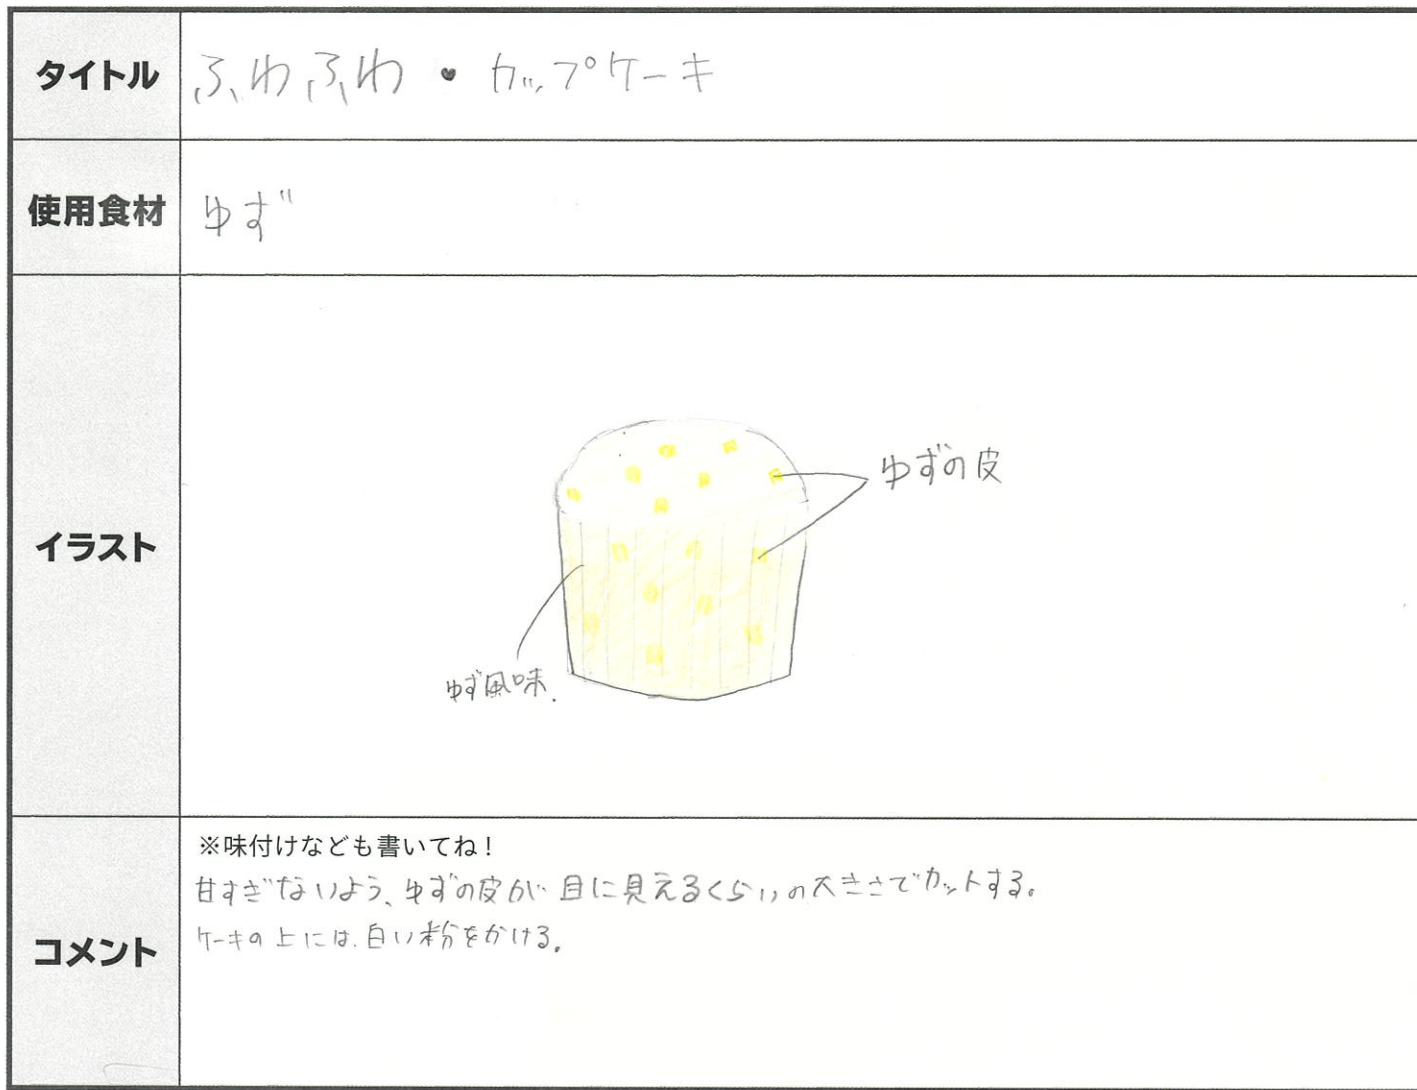 タイトル
ふわふわ・カップケーキ
使用食材
ゆず
イラスト
ゆずの皮
ゆず風味.
コメント
※味付けなども書いてね！
甘すぎないよう、ゆずの皮が目に見えるくらいの大きさでカットする。
ケーキの上には、白い粉をかける。